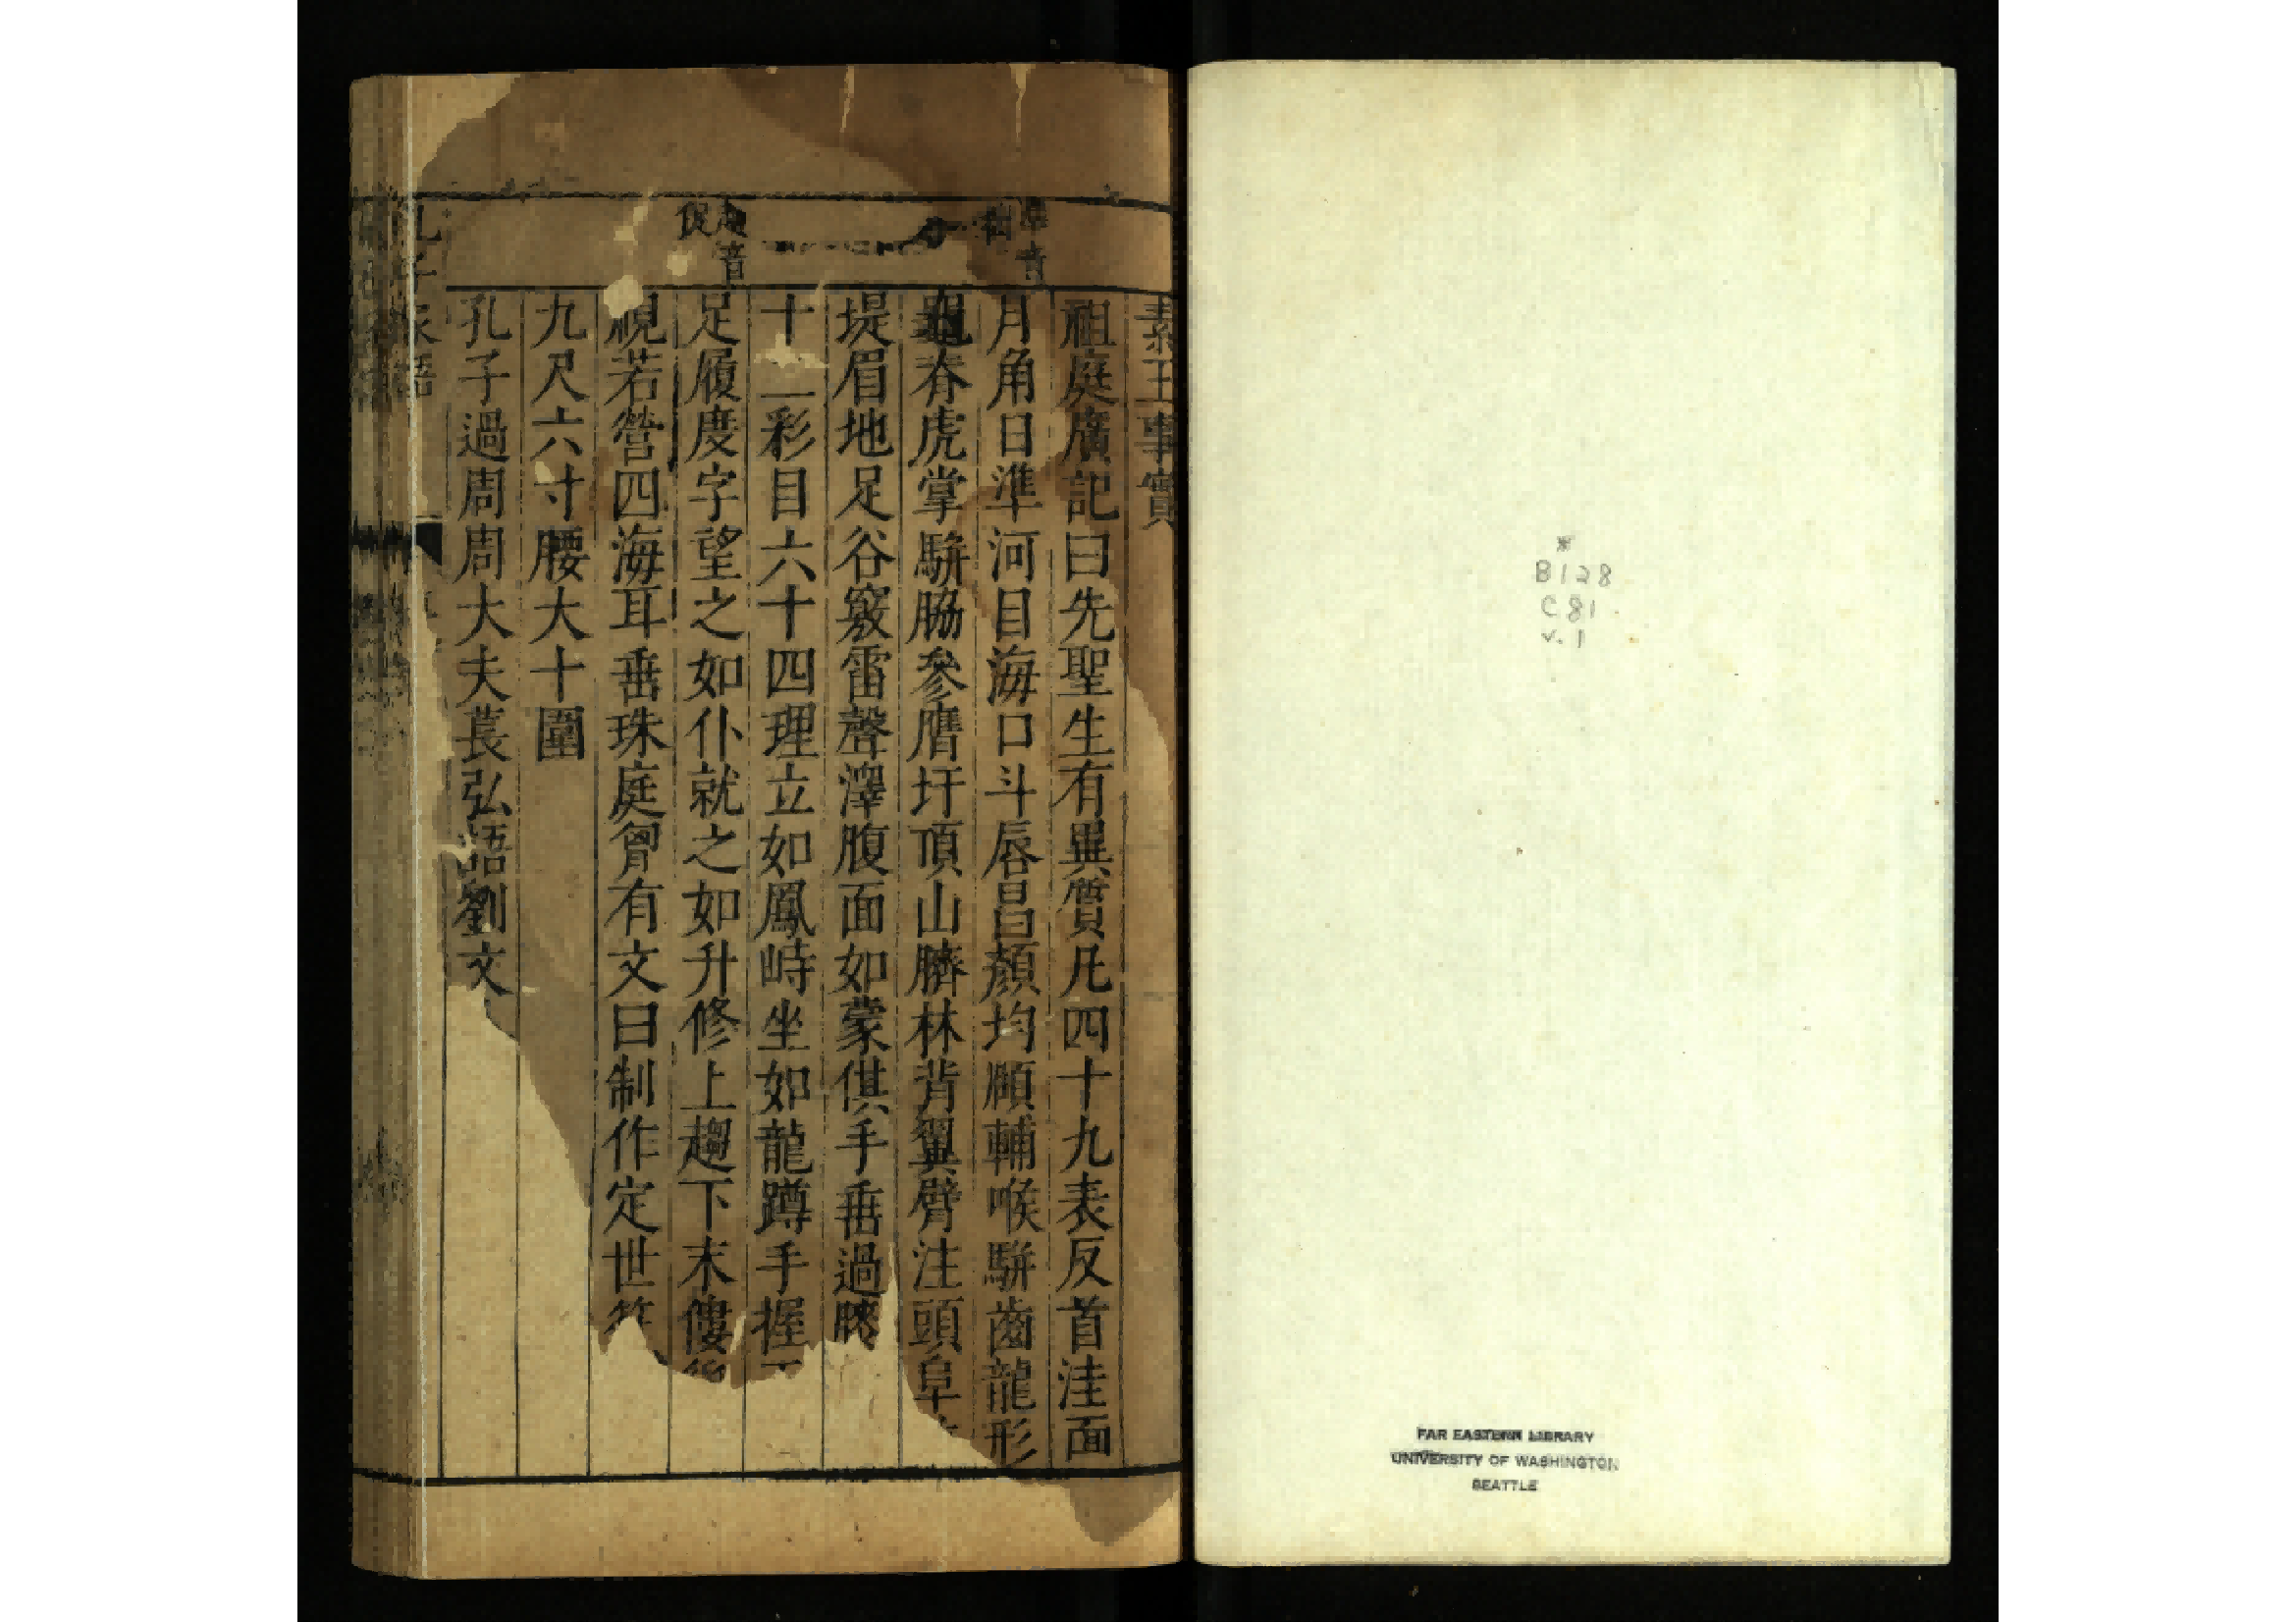 B128
C81
v.1
FAR EASTERN LIBRARY
UNIVERSITY OF WASHINGTON
SEATTLE
素王事實
祖庭廣記曰先聖生有異質凡四十九表反首洼面
月角日準河目海口斗唇昌顏均頤輔喉騈齒龍形
龜脊虎掌騈脇參膺圩頂山臍林背翼臂注頭阜
堤眉地足谷竅雷聲澤腹面如蒙倛手垂過膝
十二彩目六十四理立如鳳峙坐如龍蹲手握
足履度字望之如仆就之如升修上趨下末僂後
視若營四海耳垂珠庭胷有文曰制作定世符
九尺六寸腰大十圍
孔子過周周大夫萇弘語劉文
音
趨音
促
孔子家語